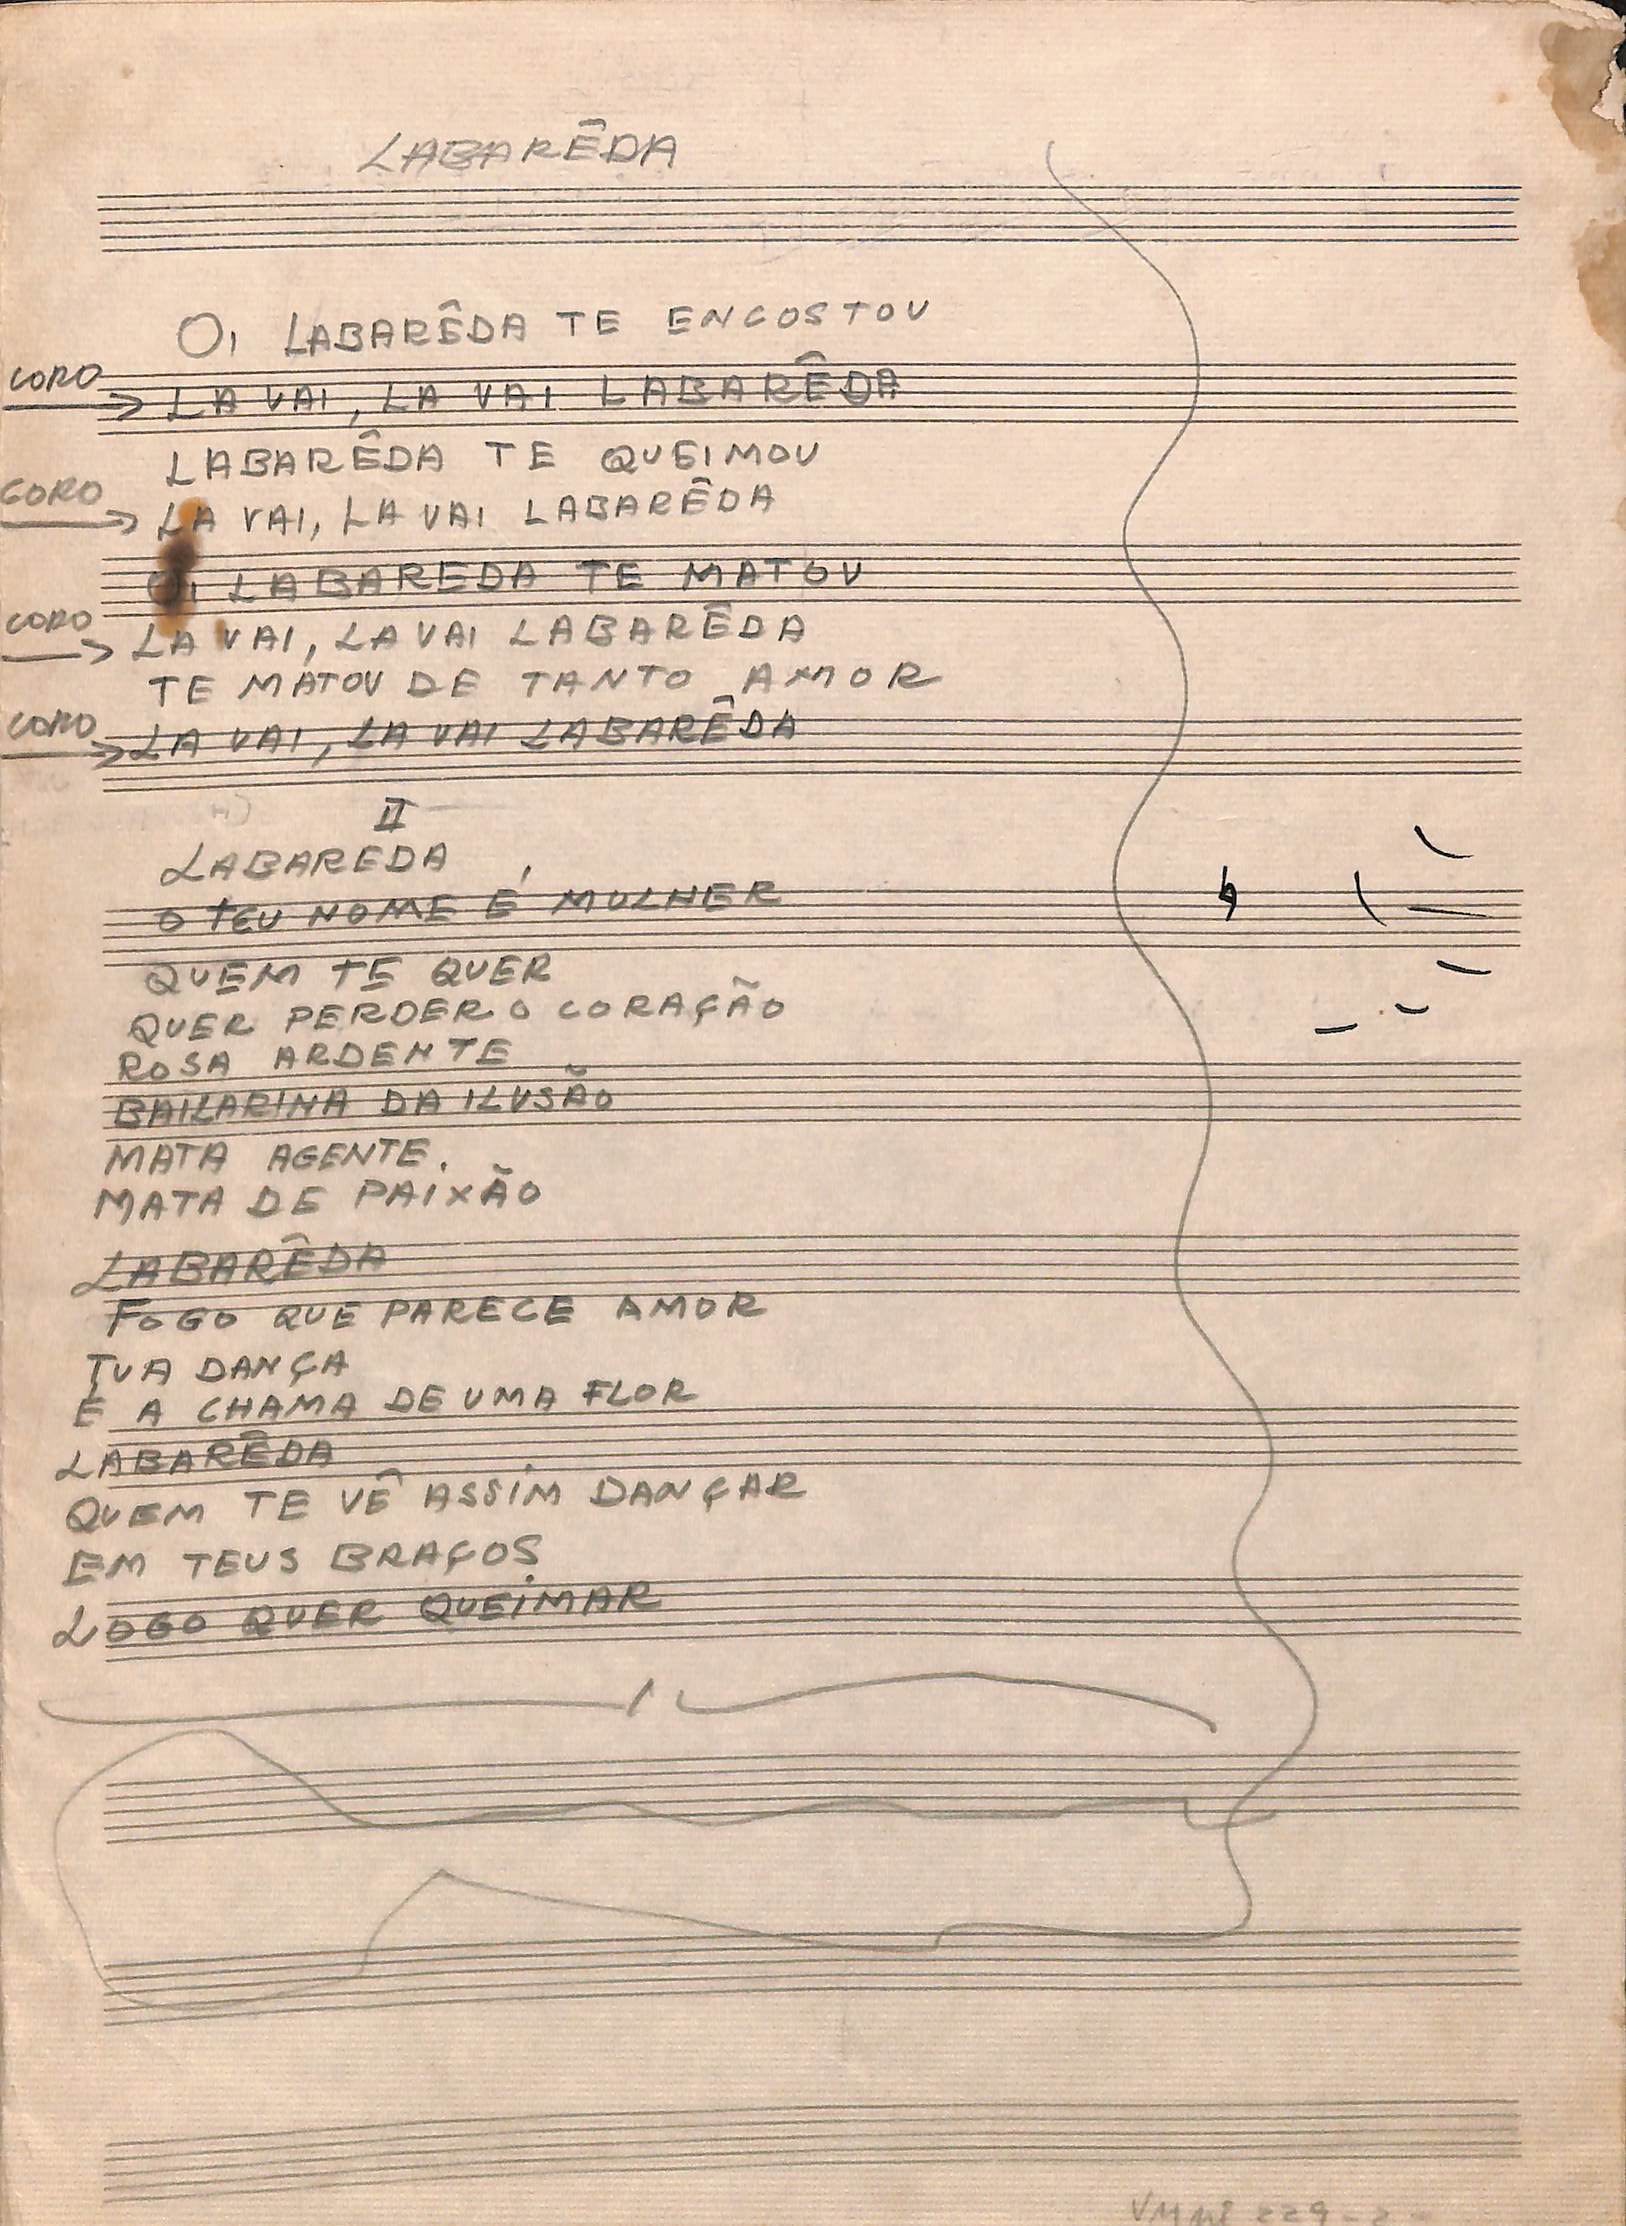 LABARÊDA
OI LABARÊDA TE ENCOSTOU
CORO → LA VAI, LA VAI LABARÊDA
LABARÊDA TE QUEIMOU
CORO → LA VAI, LA VAI LABARÊDA
OI LABAREDA TE MATOU
CORO → LA VAI, LA VAI LABARÊDA
TE MATOU DE TANTO AMOR
CORO → LA VAI, LA VAI LABARÊDA
II
LABAREDA
O TEU NOME É MULHER
QUEM TE QUER
QUER PERDER O CORAÇÃO
ROSA ARDENTE
BAILARINA DA ILUSÃO
MATA AGENTE.
MATA DE PAIXÃO
LABARÊDA
FOGO QUE PARECE AMOR
TUA DANÇA
É A CHAMA DE UMA FLOR
LABARÊDA
QUEM TE VÊ ASSIM DANÇAR
EM TEUS BRAÇOS
LOGO QUER QUEIMAR